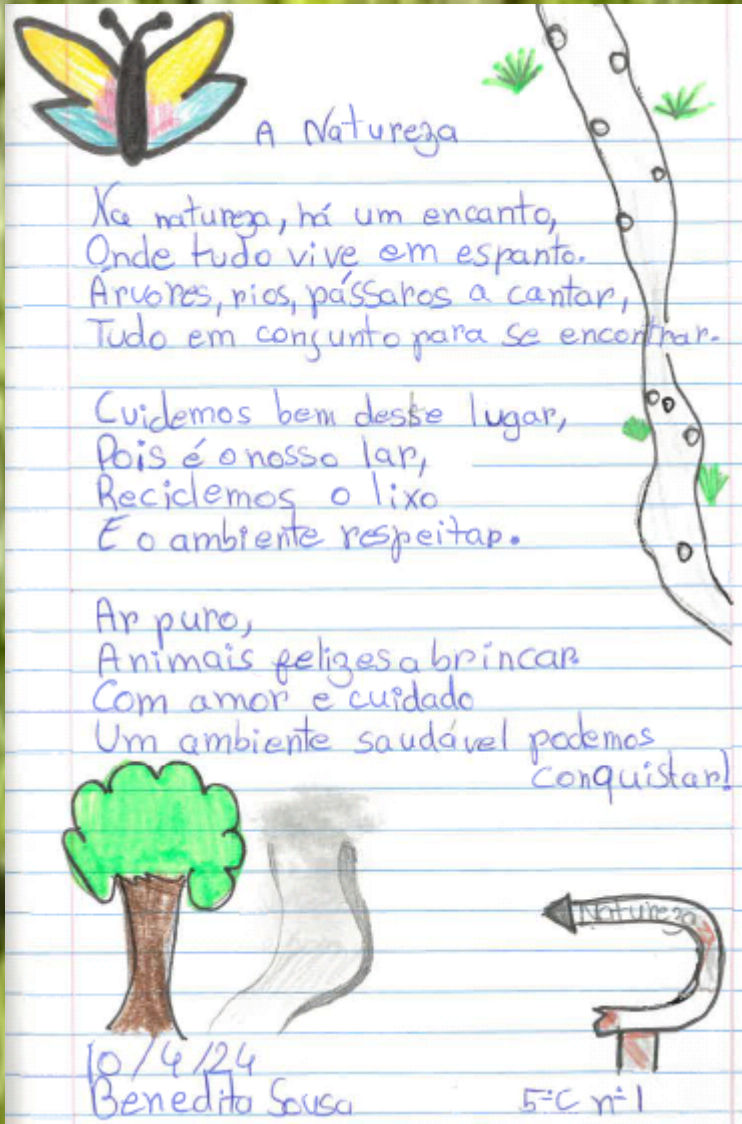 A Natureza
Na natureza, há um encanto,
Onde tudo vive em espanto.
Árvores, rios, pássaros a cantar,
Tudo em conjunto para se encontrar.
Cuidemos bem desse lugar,
Pois é o nosso lar,
Reciclemos o lixo
E o ambiente respeitar.
Ar puro,
Animais felizes a brincar.
Com amor e cuidado
Um ambiente saudável podemos
conquistar!
Natureza
10/4/24
Benedita Sousa
5ºC nº1